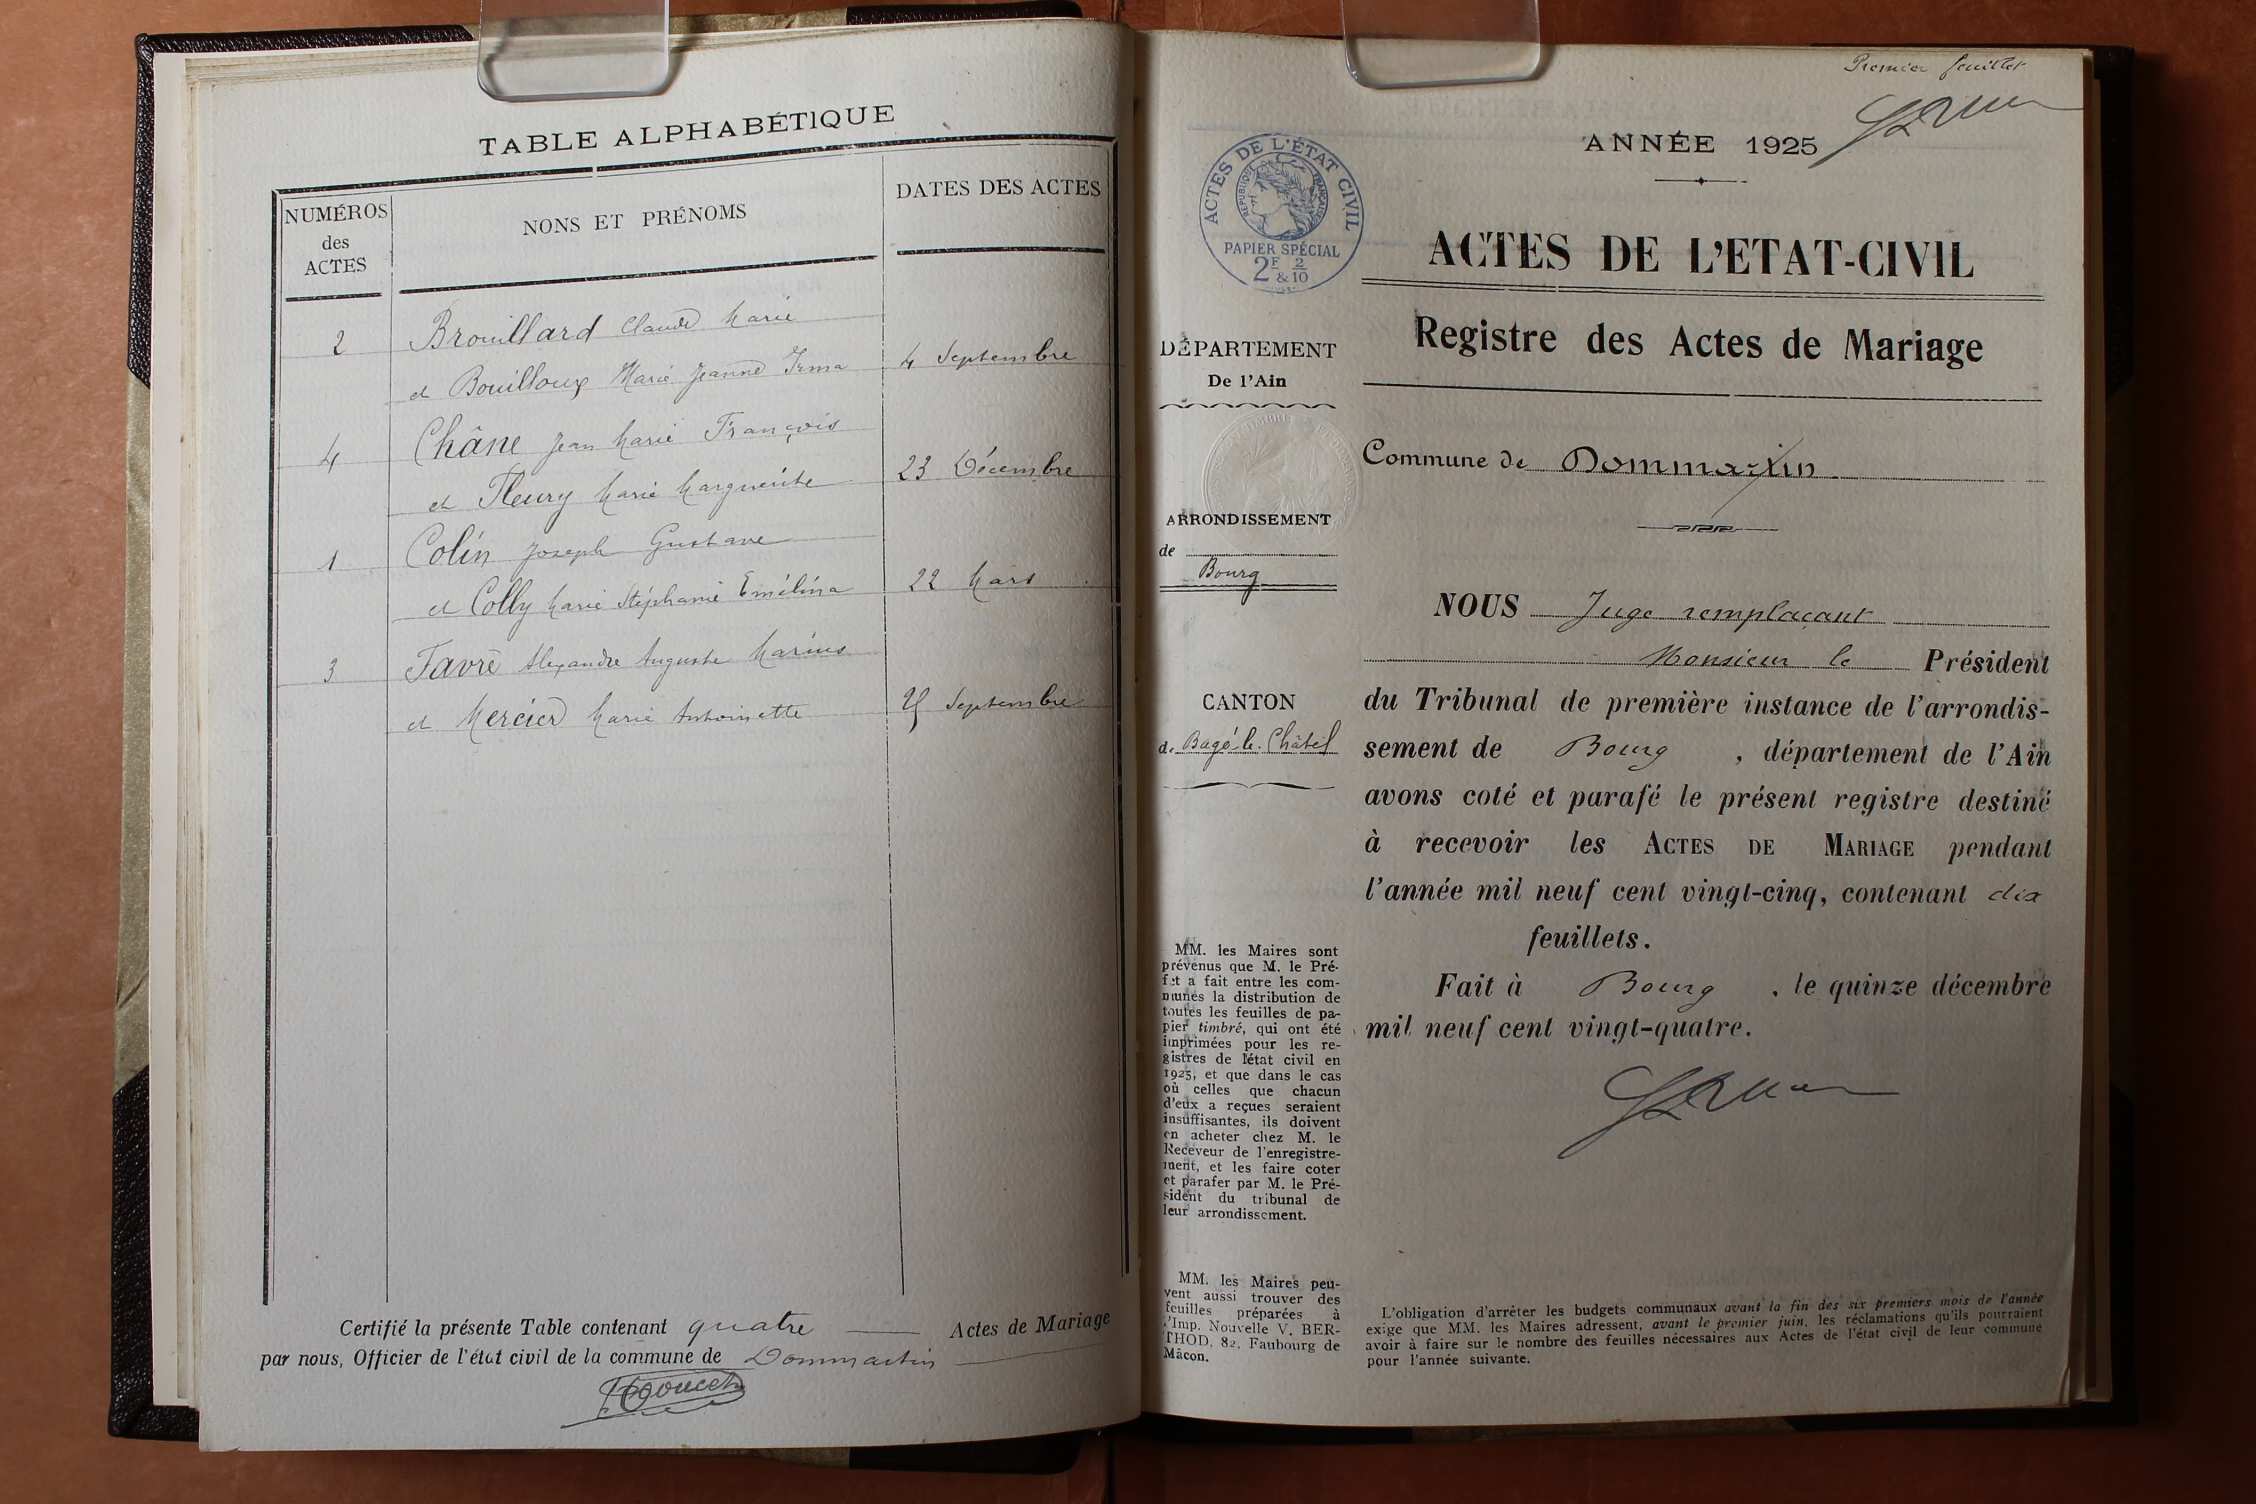 TABLE ALPHABÉTIQUE
NUMÉROS
des
ACTES
NONS ET PRÉNOMS
DATES DES ACTES
2 Brouillard Claude Marie
et Bouilloux Marie Jeanne Irma 4 Septembre
4 Châne Jean Marie François
et Fleury Marie Marguerite 23 Décembre
1 Colin Joseph Gustave
et Colly Marie Stéphanie Emélina 22 Mars
3 Favre Alexandre Auguste Marius
et Mercier Marie Antoinette Septembre
Certifié la présente Table contenant quatre Actes de Mariage
par nous, Officier de l'état civil de la commune de Dommartin
Premier feuillet
ANNÉE 1925
ACTES DE L'ÉTAT CIVIL
RÉPUBLIQUE FRANÇAISE
PAPIER SPÉCIAL
2F & 2/10
ACTES DE L'ETAT-CIVIL
Registre des Actes de Mariage
DÉPARTEMENT
De l'Ain
Commune de Dommartin
ARRONDISSEMENT
de
Bourg
CANTON
de Bagé-le-Châtel
NOUS Juge remplaçant
Monsieur le Président
du Tribunal de première instance de l'arrondis-
sement de Bourg, département de l'Ain
avons coté et parafé le présent registre destiné
à recevoir les ACTES DE MARIAGE pendant
l'année mil neuf cent vingt-cinq, contenant dix
feuillets.
Fait à Bourg, le quinze décembre
mil neuf cent vingt-quatre.
MM. les Maires sont
prévenus que M. le Pré-
fet a fait entre les com-
munes la distribution de
toutes les feuilles de pa-
pier timbré, qui ont été
imprimées pour les re-
gistres de l'état civil en
1925, et que dans le cas
où celles que chacun
d'eux a reçues seraient
insuffisantes, ils doivent
en acheter chez M. le
Receveur de l'enregistre-
ment, et les faire coter
et parafer par M. le Pré-
sident du tribunal de
leur arrondissement.
MM. les Maires peu-
vent aussi trouver des
feuilles préparées à
l'Imp. Nouvelle V. BER-
THOD, 82, Faubourg de
Mâcon.
L'obligation d'arrêter les budgets communaux avant la fin des six premiers mois de l'année
exige que MM. les Maires adressent, avant le premier juin, les réclamations qu'ils pourraient
avoir à faire sur le nombre des feuilles nécessaires aux Actes de l'état civil de leur commune
pour l'année suivante.